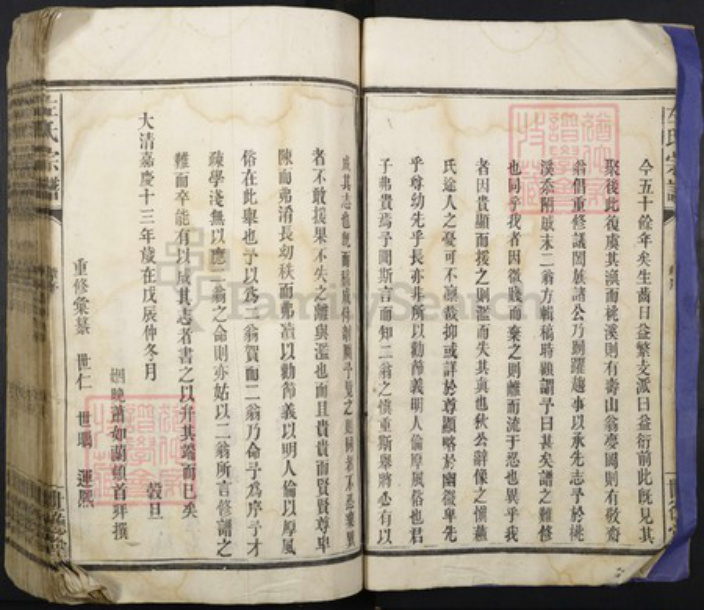 今五十餘年矣生齒日益繁支派日益衍前此既見其
聚後此復虞其渙而桃溪則有壽山翁麥園則有敬齋
翁倡重修議閤族諸公乃踴躍趨事以承先志予於桃
溪忝附戚末二翁方輯稿時顧謂予曰甚矣譜之難修
也同乎我者因微賤而棄之則離而流于恝也異乎我
者因貴顯而援之則濫而失其真也狄公辭像之慎蘇
氏途人之憂可不凜哉抑或詳於尊顯略於幽微卑先
乎尊幼先乎長亦非所以勸節義明人倫厚風俗也君
子弗貴焉予聞斯言而知二翁之慎重斯舉將必有以
成其志也既而稿成
者不敢援果不失之離與濫也而且貴貴而賢賢尊卑
陳而弗淆長幼秩而弗凟以勸節義以明人倫以厚風
俗在此舉也予以為二翁賀而二翁乃命予為序予才
疎學淺無以應二翁之命則亦姑以二翁所言修譜之
難而卒能有以成其志者書之以弁其端而已矣
大清嘉慶十三年歲在戊辰仲冬月 穀旦
姻晚蕭如蘭頓首拜撰
重修彙纂 世仁 世暘 運熙
左氏宗譜
FamilySearch